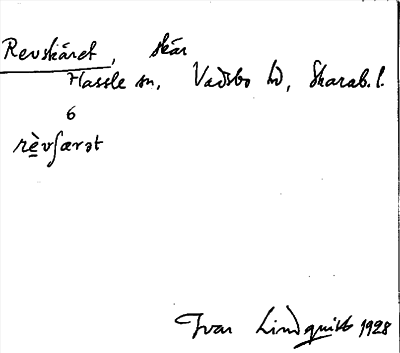 Revskäret, skär
Hassle sn, Vadsbo hd, Skarab. l.
6
rèvʃærət
Ivar Lindquist 1928